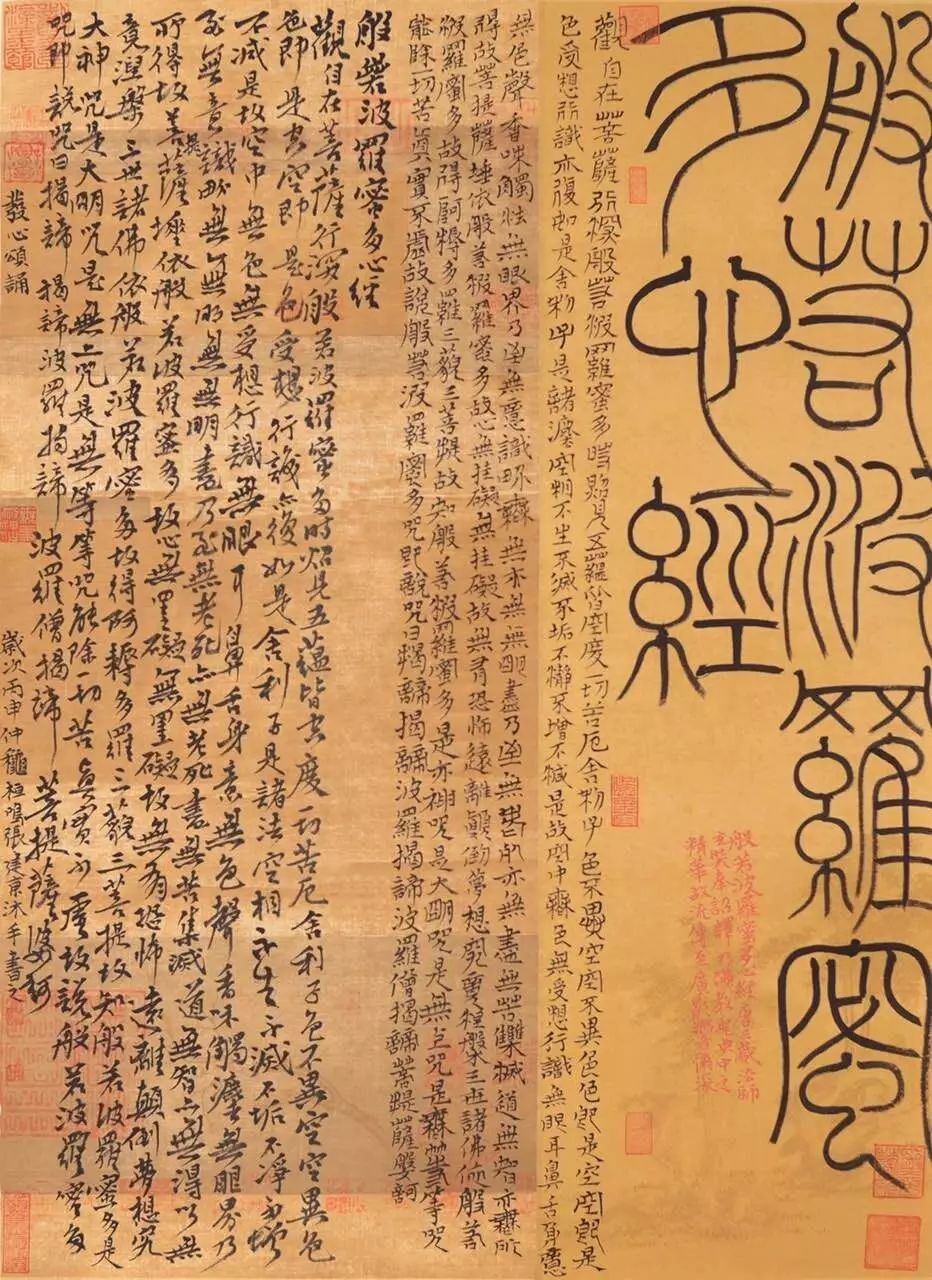 般若波羅蜜
多心經
般若波羅蜜多心經唐三藏法師
玄奘奉詔譯乃佛教聖典中之
精華故流傳至廣影響甚深
觀自在菩薩行深般若波羅蜜多時照見五蘊皆空度一切苦厄舍利子色不異空空不異色色即是空空即是
色受想行識亦復如是舍利子是諸法空相不生不滅不垢不淨不增不減是故空中無色無受想行識無眼耳鼻舌身意
無色聲香味觸法無眼界乃至無意識界無亦無無明盡乃至無老死亦無盡無苦集滅道無智亦無所
得故菩提薩埵依般若波羅蜜多故心無挂礙無挂礙故無有恐怖遠離顛倒夢想究竟涅槃三世諸佛依般若
波羅蜜多故得阿耨多羅三藐三菩提故知般若波羅蜜多是大神咒是大明咒是無上咒是無等等咒
能除一切苦真實不虛故說般若波羅蜜多咒即說咒曰揭諦揭諦波羅揭諦波羅僧揭諦菩提薩婆訶
般若波羅蜜多心經
觀自在菩薩行深般若波羅蜜多時照見五蘊皆空度一切苦厄舍利子色不異空空異色
色即是空空即是色受想行識亦復如是舍利子是諸法空相不生不滅不垢不淨不增
不減是故空中無色無受想行識無眼耳鼻舌身意無色聲香味觸法無眼界乃
至無意識界無無明無無明盡乃至無老死亦無老死盡無苦集滅道無智亦無得以無
所得故菩提薩埵依般若波羅蜜多故心無罣礙無罣礙故無有恐怖遠離顛倒夢想究
竟涅槃三世諸佛依般若波羅蜜多故得阿耨多羅三藐三菩提故知般若波羅蜜多是
大神咒是大明咒是無上咒是無等等咒能除一切苦真實不虛故說般若波羅蜜多
咒即說咒曰揭諦揭諦波羅揭諦波羅僧揭諦菩提薩婆訶
發心頌誦
歲次丙申仲龝桓鳴張建京沐手書之